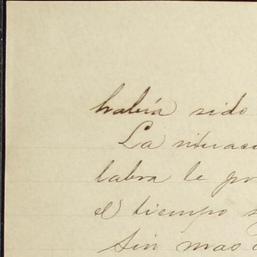 había sido
La situac
labra le po
el tiempo
Sin mas